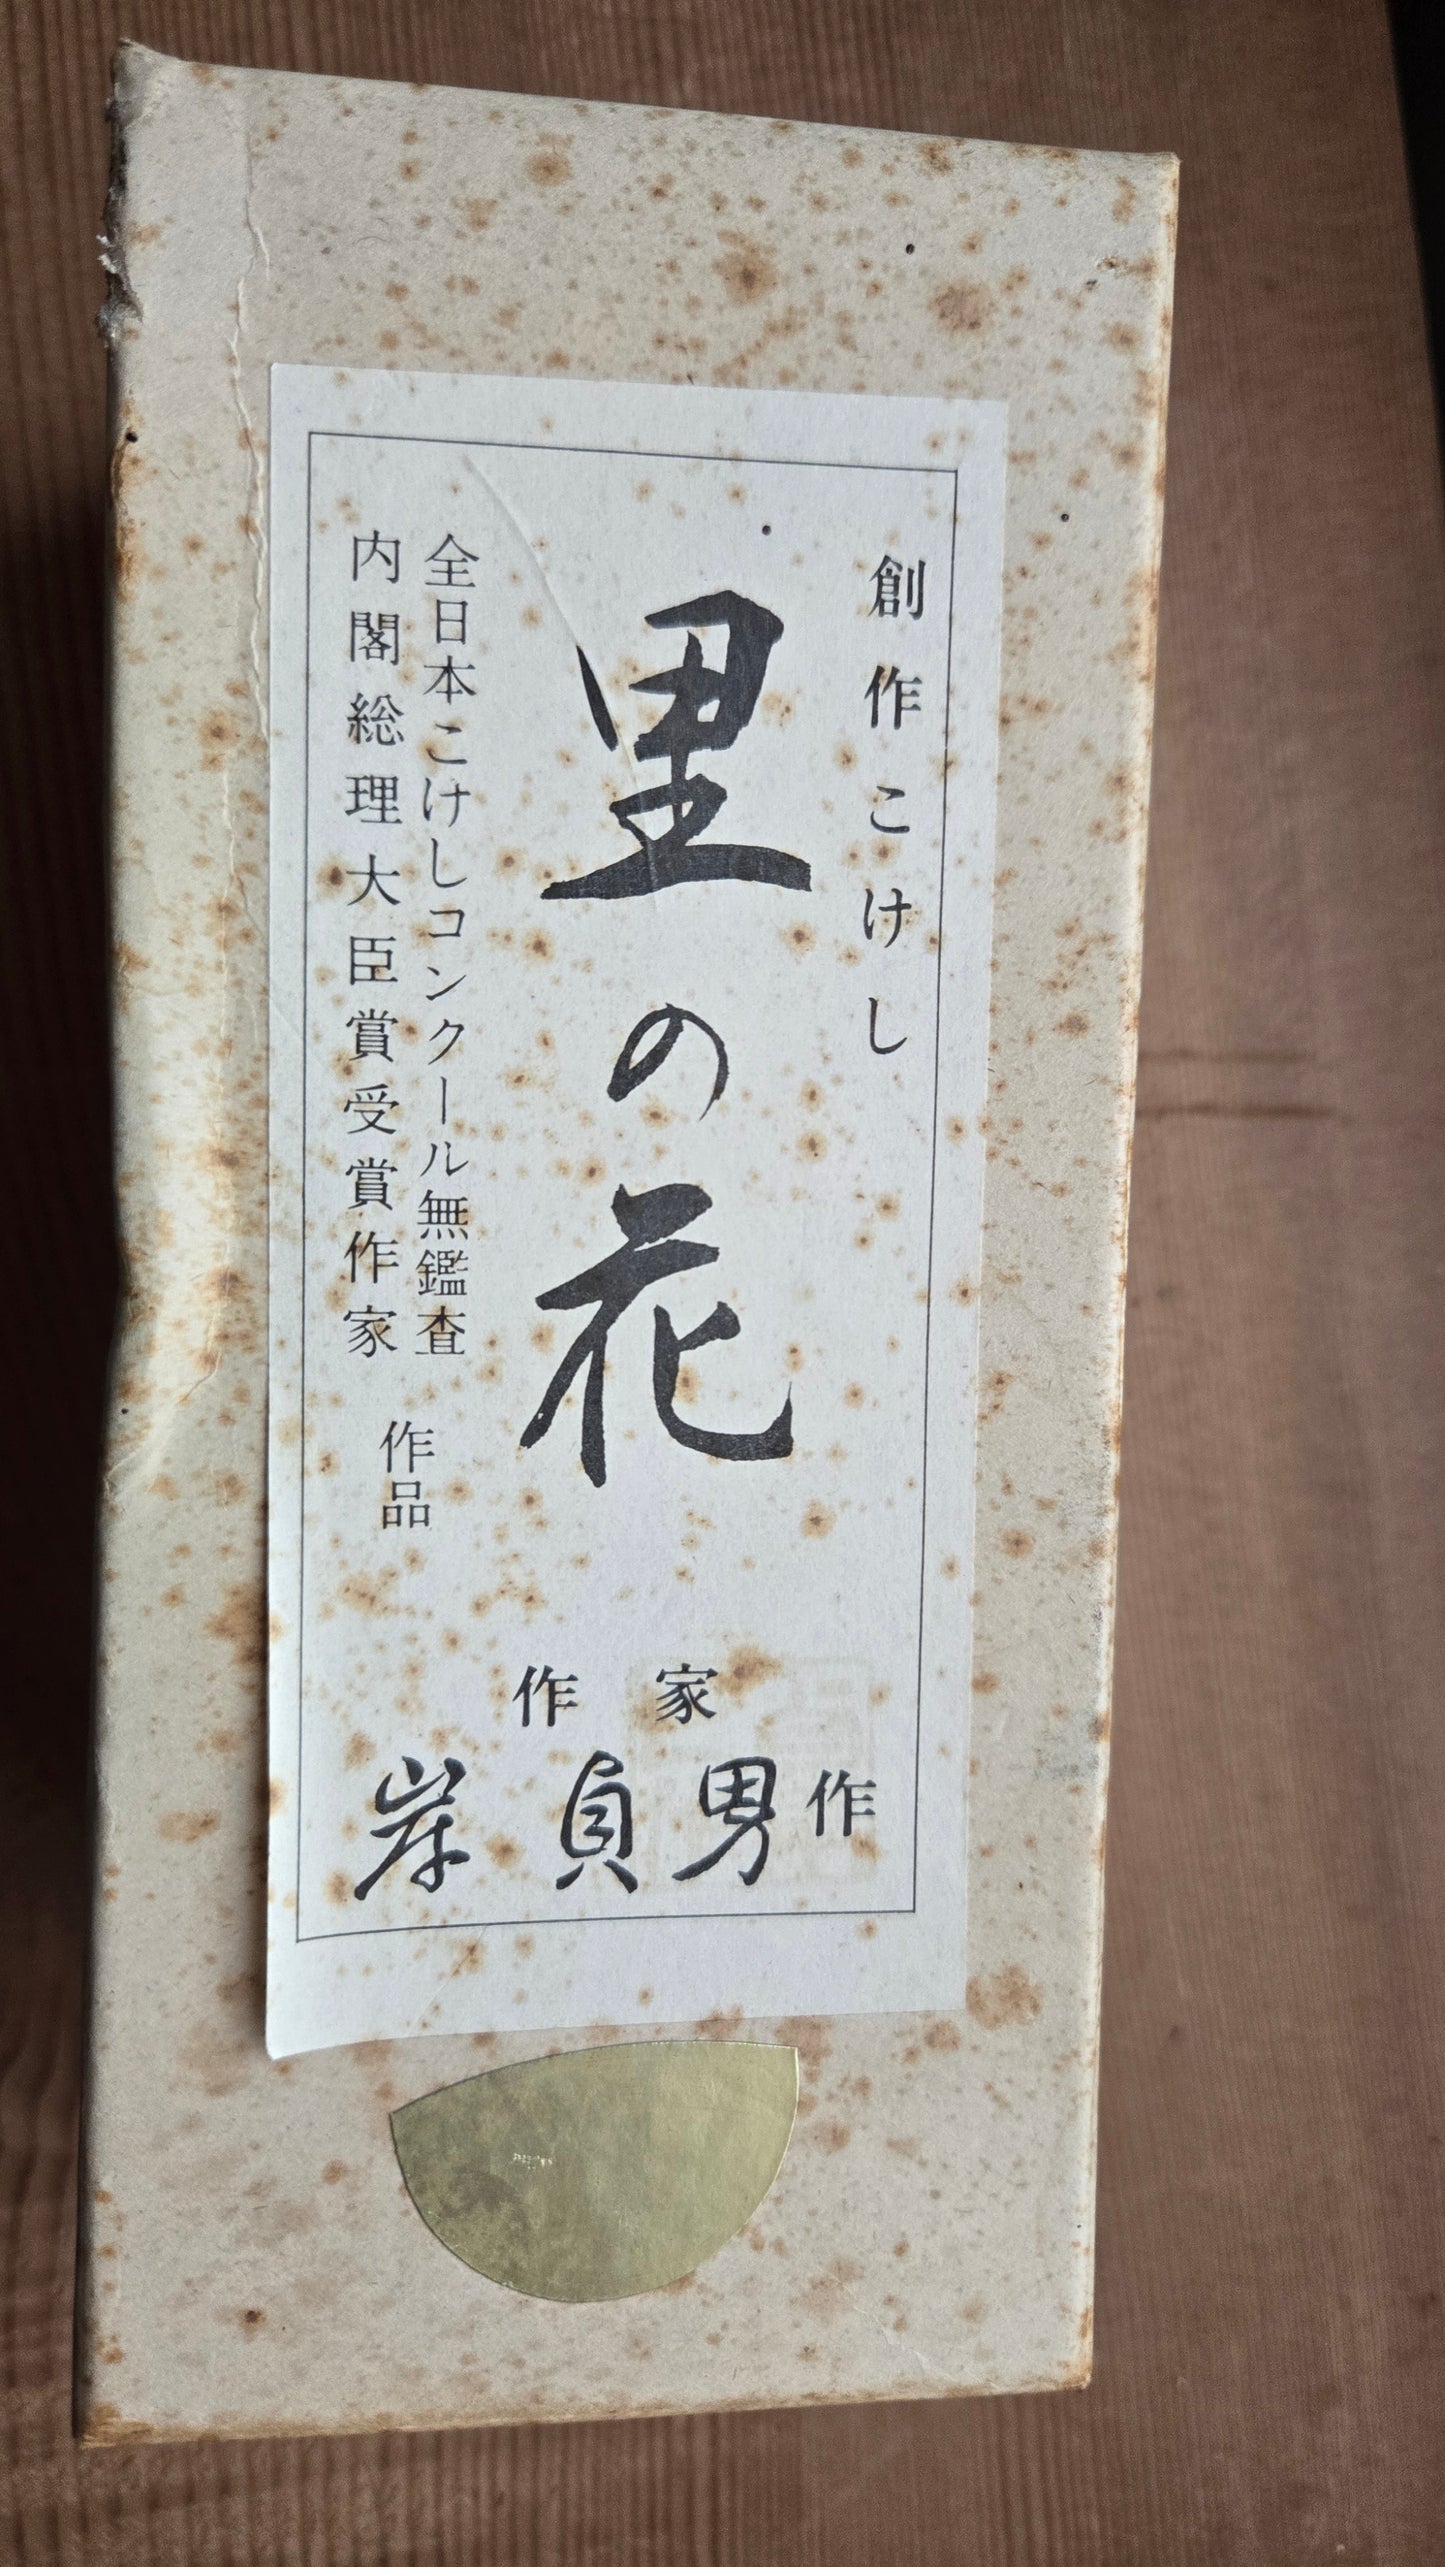 創作こけし
里の花
全日本こけしコンクール無鑑査
内閣総理大臣賞受賞作家
作品
作家
岸貞男作